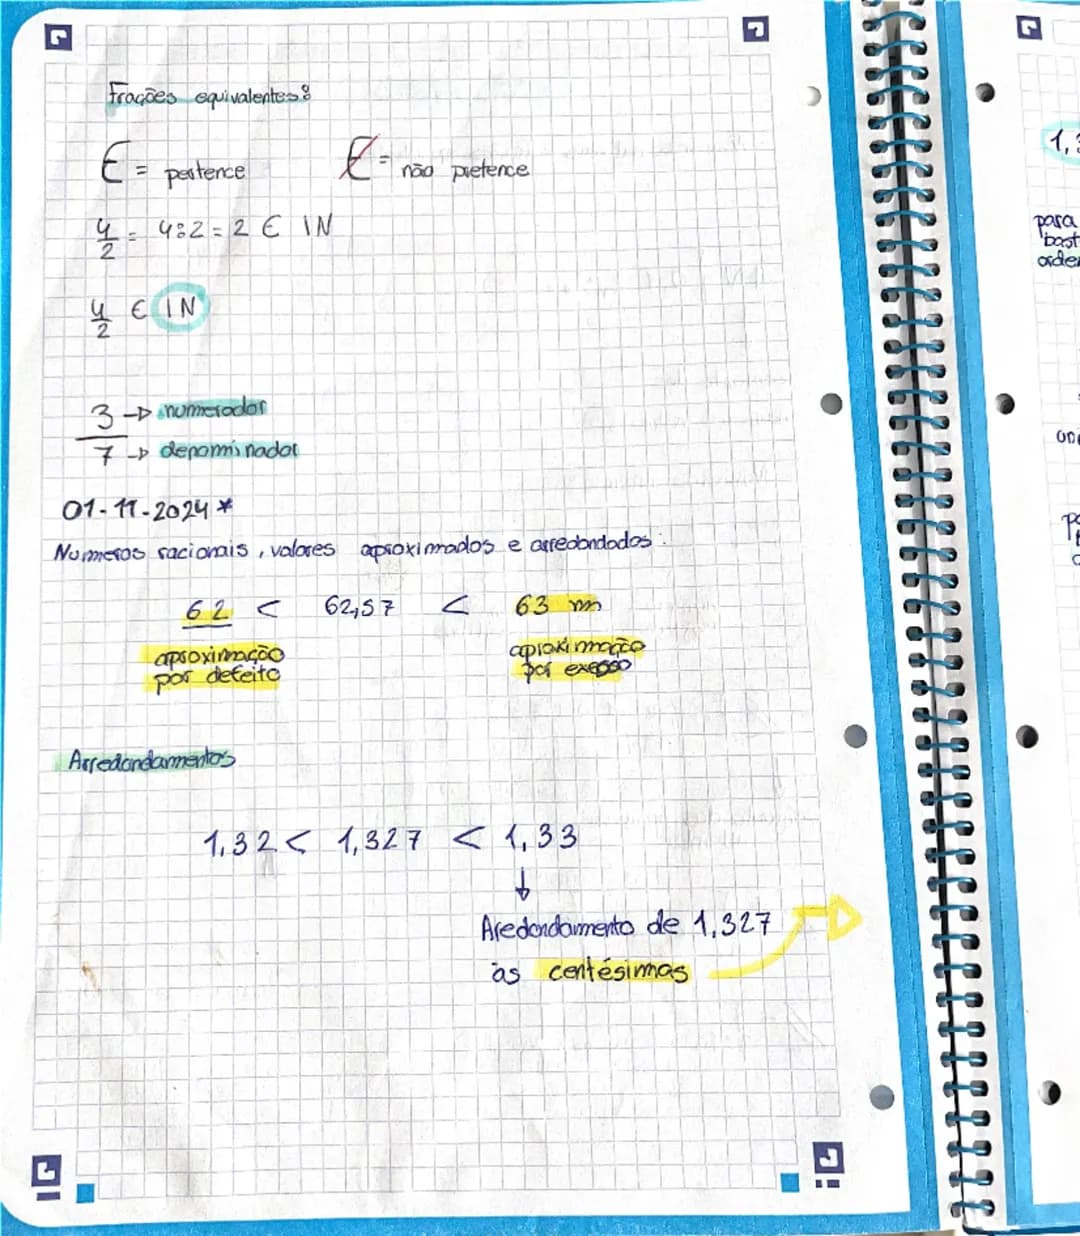 Frações equivalentes:
∈ = pertence ∉ = não pretence
4/2 = 4:2 = 2 ∈ IN
4/2 ∈ IN
3 → numerador
7 → denominador
01-11-2024 *
Numeros racionais, valores aproximados e arredondados:
62 < 62,57 < 63 m
aproximação aproximação
por defeito por exesso
Arredondamentos
1,32 < 1,327 < 1,33
↓
Aredondamento de 1,327
às centésimas
1,3
para
bast
orde